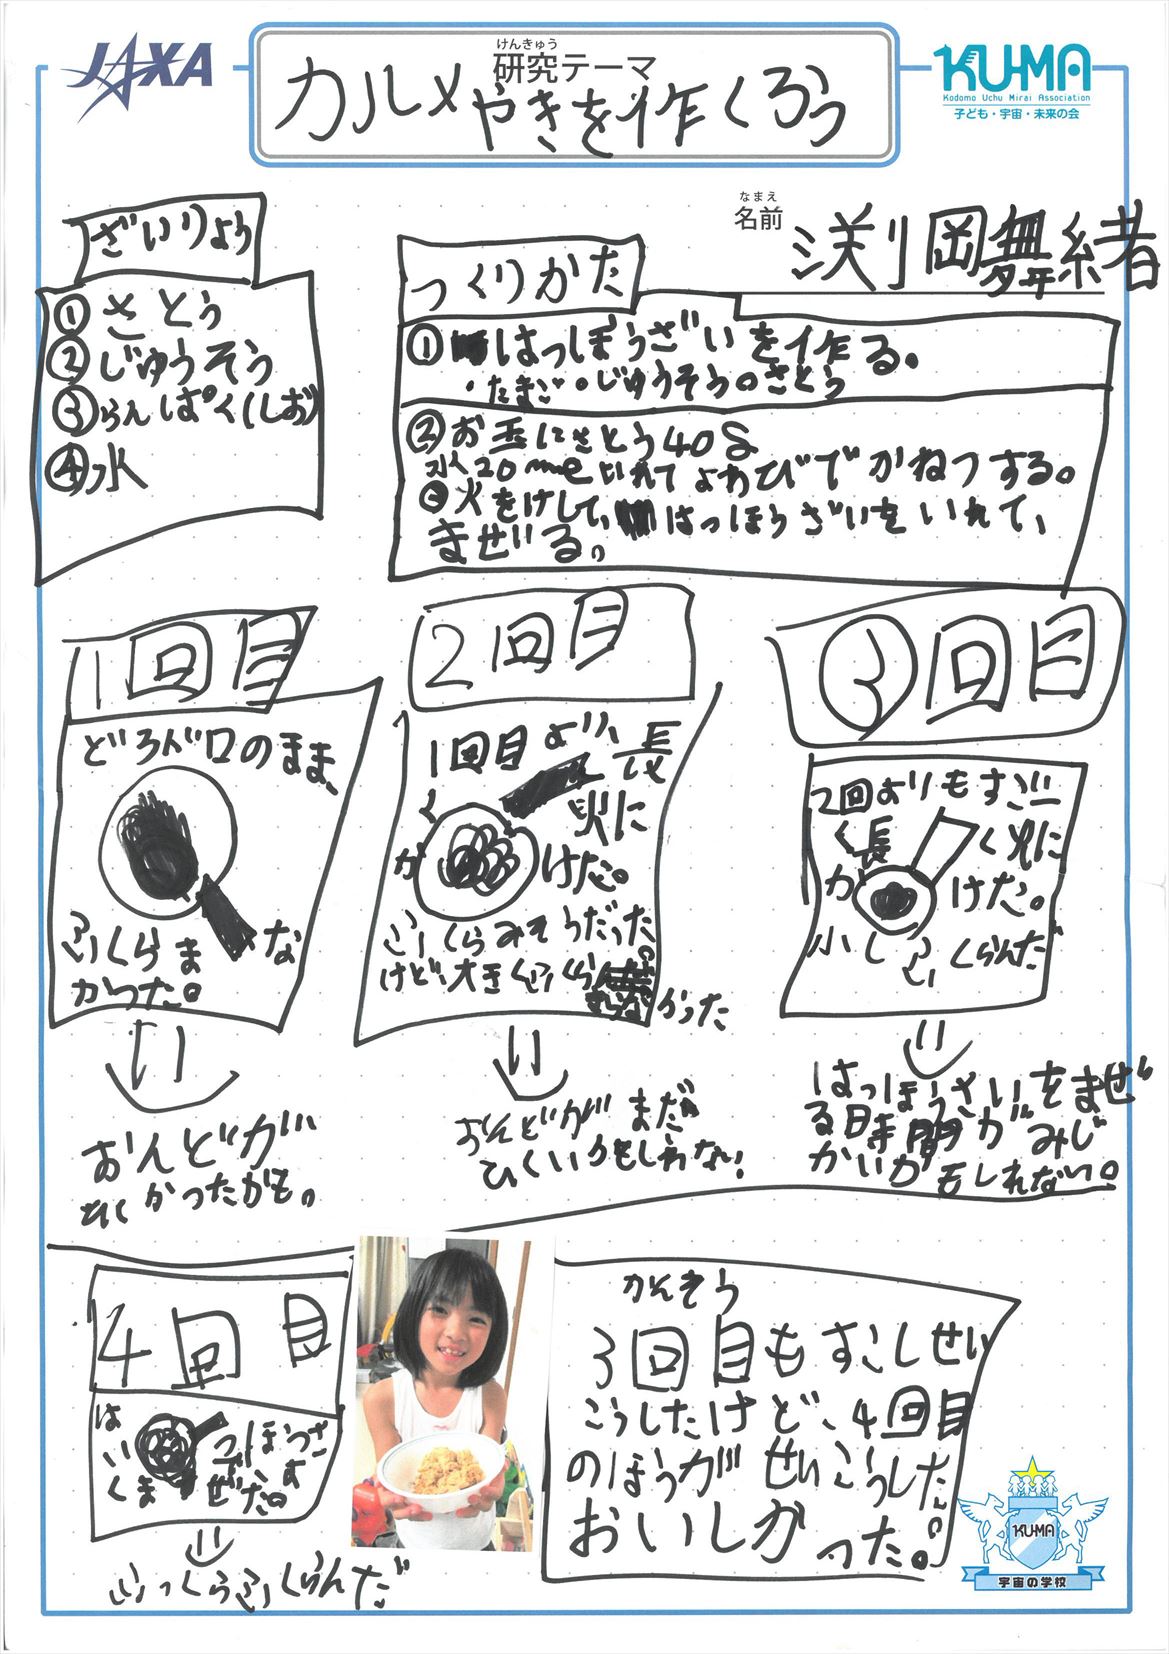 JAXA
けんきゅう
研究テーマ
カルメやきを作くろう
KU-MA
Kodomo Uchu Mirai Association
子ども・宇宙・未来の会
なまえ
名前
渕岡舞緒
ざいりょう
①さとう
②じゅうそう
③らんぱく(しお)
④水
つくりかた
①はっぽうざいを作る。
・たまご。じゅうそう。さとう
②お玉にさとう40g
水20mlをいれてよわびでかねつする。
火をけして、はっぽうざいをいれて、
まぜる。
1回目
どろドロのまま、
ふくらまな
かった。
2回目
1回目より、長
く火に
がけた。
ふくらみそうだった。
けど、大きくふくらまなかった
3回目
2回よりもすごー
く長く火に
がけた。
小しふくらんだ
おんどが
ひくかったかも。
おんどがまだ
ひくいかもしれない!
はっぽうざいをまぜ
る時間がみじ
かいかもしれない。
4回目
はっぽうざ
いす
くまぜた。
ふっくらふくらんだ
かんそう
3回目もすこしせい
こうしたけど、4回目
のほうがせいこうした。
おいしかった。
KU-MA
宇宙の学校